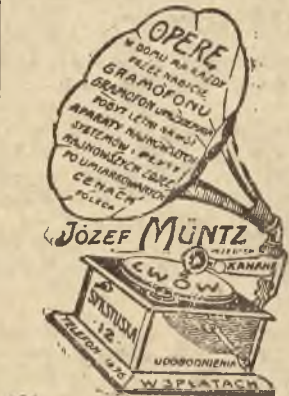 OPERĘ
W DOMU MA KAŻDY
PRZEZ NABYCIE
GRAMOFONU
GRAMOFON
POBYT LETNI NA WSI
APARATY NAJNOWSZYCH
SYSTEMÓW I PŁYTY
NAJNOWSZYCH ZDJĘĆ
PO UMIARKOWANYCH
CENACH
POLECA
JÓZEF MÜNTZ
LWÓW
SYKSTUSKA
2
TELEFON 1476
UDOGODNIENIA
W SPŁATACH